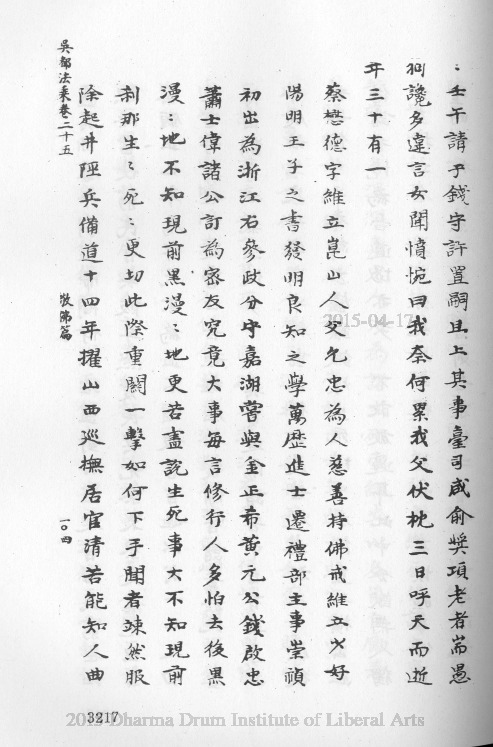 ：壬午請于錢守許置嗣且上其事臺司咸俞獎項老者耑愚
徊讒多違言女聞憤惋曰我奈何累我父伏枕三日呼天而逝
年三十有一
蔡懋德字維立崑山人父允忠為人慈善持佛戒維立少好
陽明王子之書發明良知之學萬歷進士遷禮部主事崇禎
初出為浙江右參政分守嘉湖嘗與金正希黃元公錢啟忠
蕭士偉諸公訂為密友究竟大事每言修行人多怕去後黑
漫：地不知現前黑漫：地更苦盡說生死事大不知現前
刹那生：死：更切此際重關一擊如何下手聞者竦然服
除起井陘兵備道十四年擢山西巡撫居官清苦能知人曲
吳都法乘卷二十五
牧篇
一〇四
3217
2015-04-17
Dharma Drum Institute of Liberal Arts